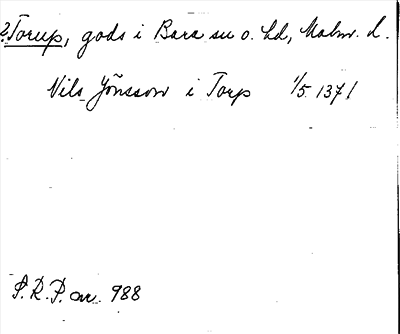 ? Torup, gods i Bara sn o. hd, Malm. l.
Nils Jönsson i Torp 1/5 1371
S.R.P. nr. 988